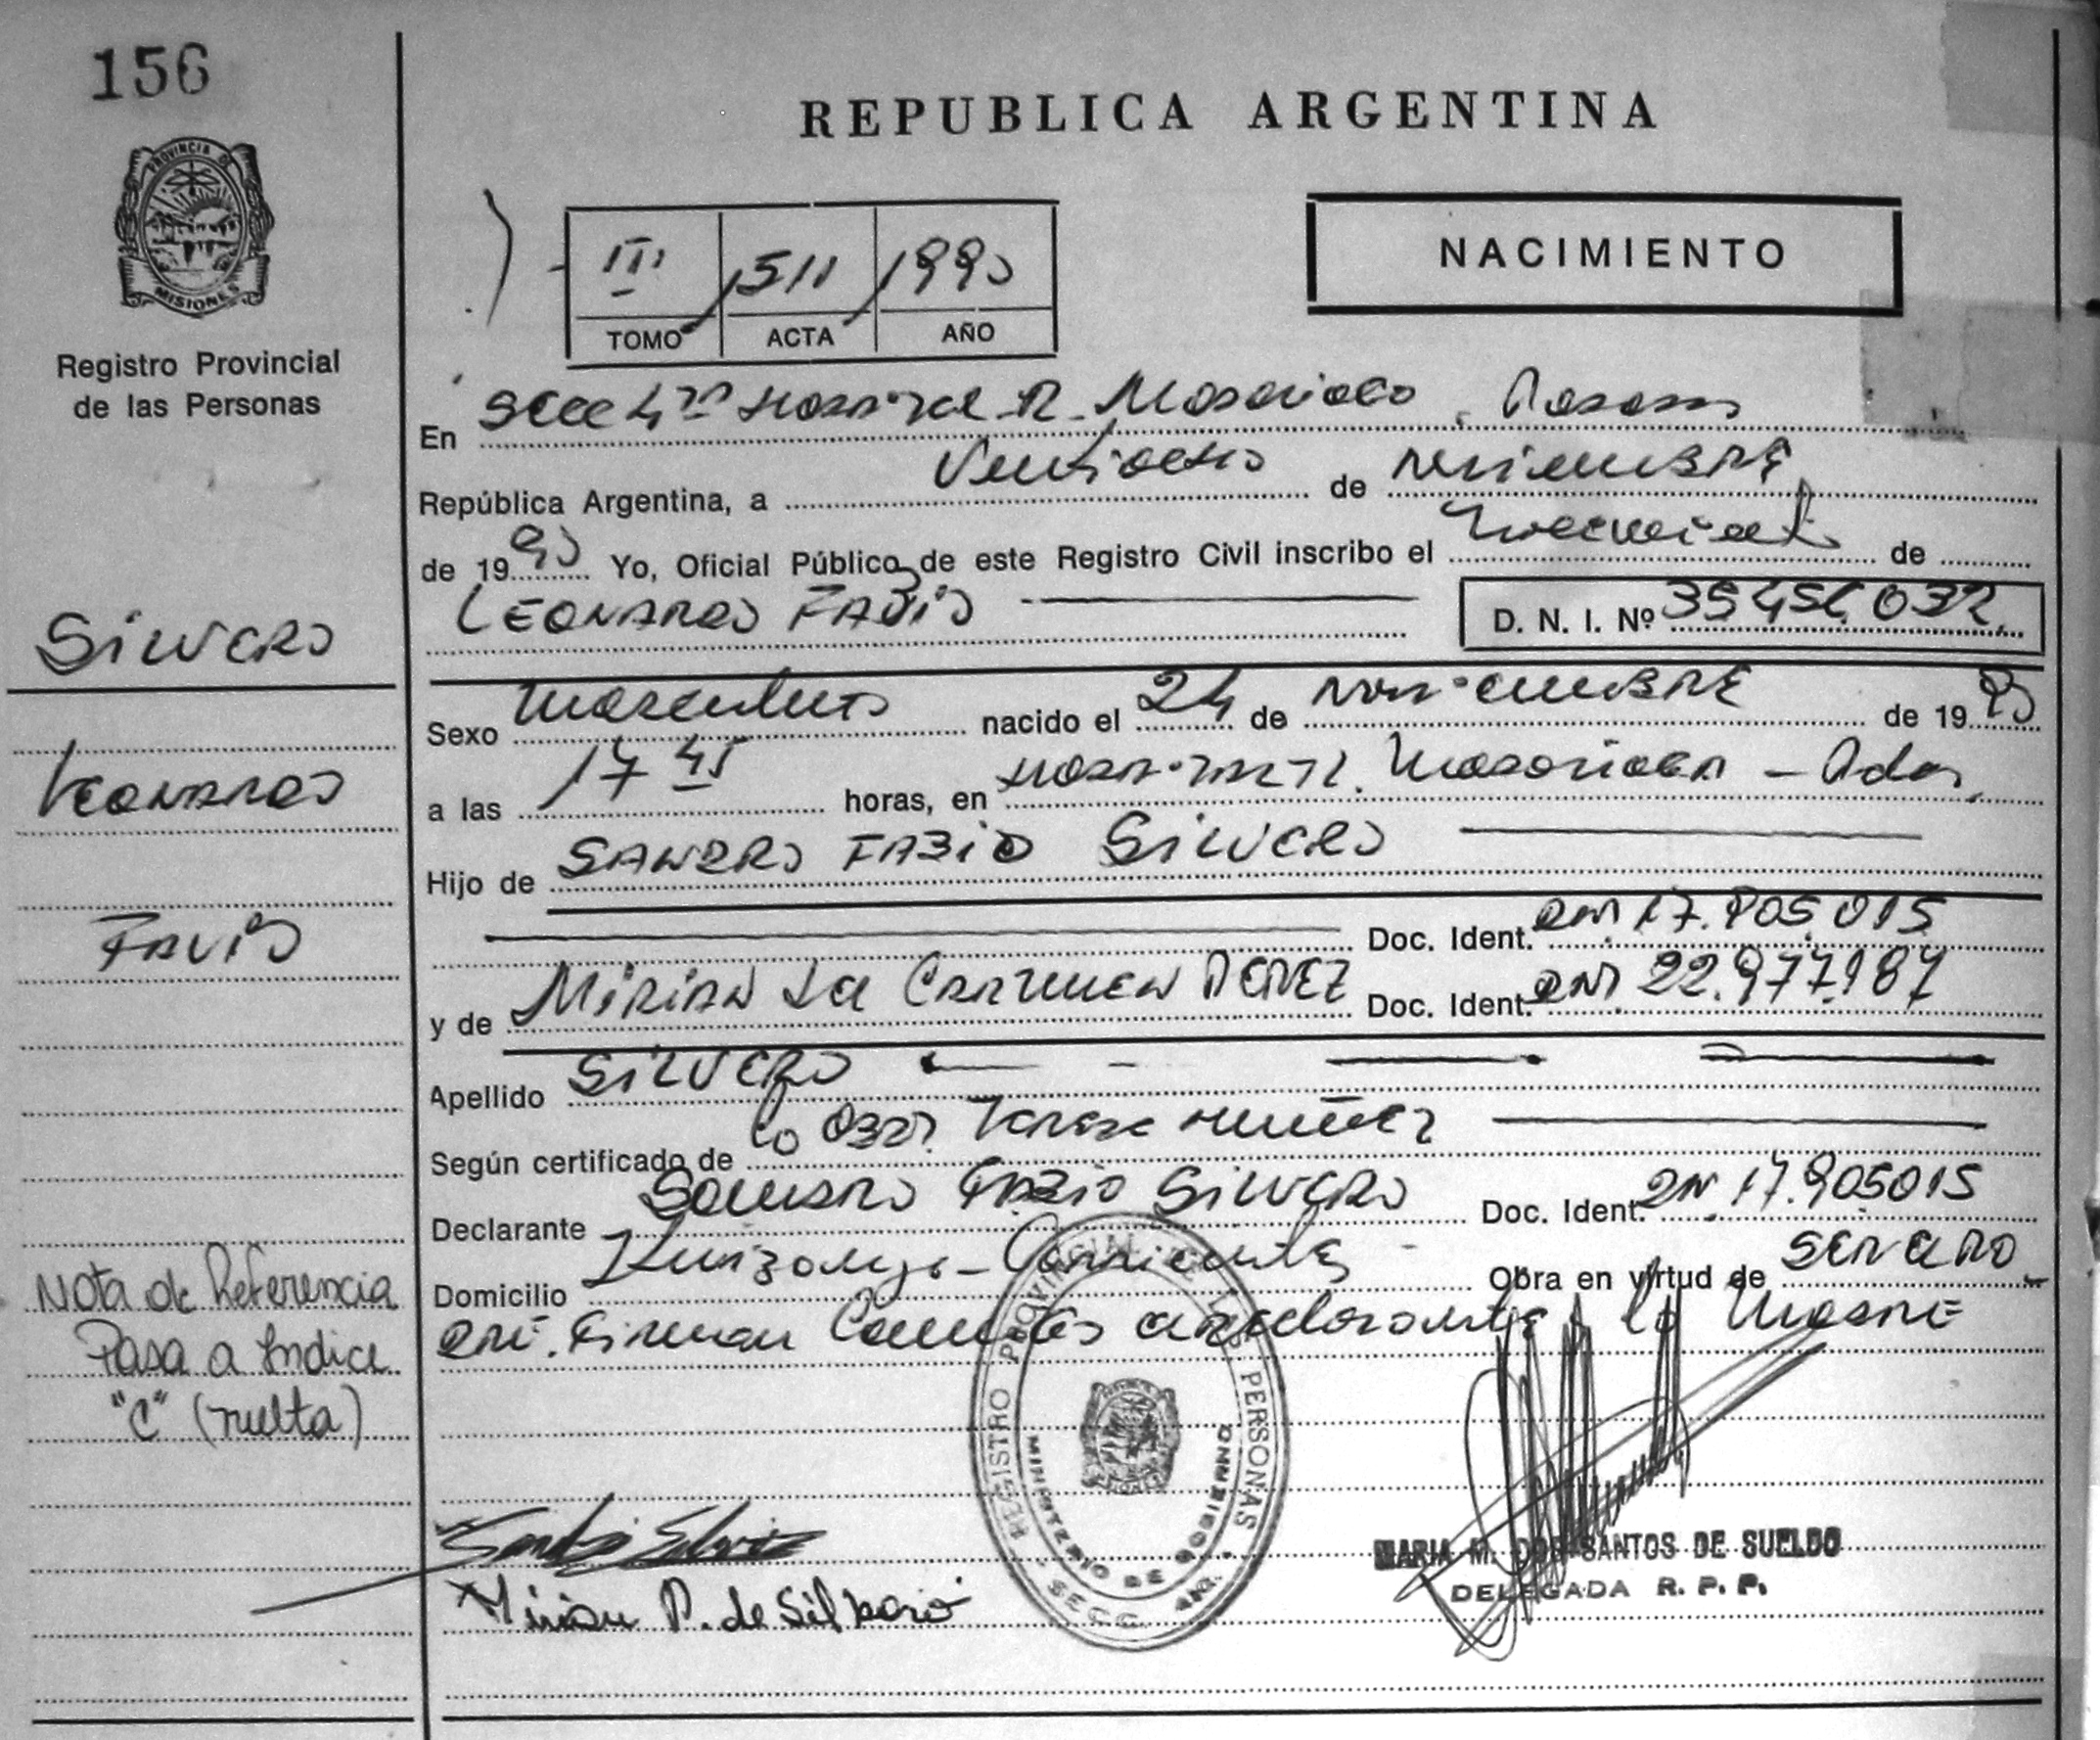 156
REPUBLICA ARGENTINA
PROVINCIA DE
MISIONES
Registro Provincial
de las Personas
III 1511 1990
TOMO ACTA AÑO
NACIMIENTO
En Secc 4ta R. Madariaga Posadas
República Argentina, a Ventiocho de noviembre
de 1990 Yo, Oficial Público de este Registro Civil inscribo el nacimiento de
LEONARDO FABIO D. N. I. Nº 35.456.032
SILVERO
Sexo masculino nacido el 24 de noviembre de 1990
LEONARDO
a las 17 45 horas, en R. Madariaga - Pdas,
Hijo de SANDRO FABIO SILVERO
FAVIO
Doc. Ident. DNI 17.905.015
y de MIRIAN del CARMEN PEREZ Doc. Ident. DNI 22.977.187
Apellido SILVERO
Según certificado de la Obst.
Declarante SANDRO FABIO SILVERO Doc. Ident. DNI 17.905015
Domicilio Ituzaingo - Corrientes Obra en virtud de ser el pro
Nota de Referencia
Pasa a Indice
"C" (vuelta)
pre. Firman ambos declarante y la madre
REGISTRO PROVINCIAL DE LAS PERSONAS
MINISTERIO DE GOBIERNO
SECC. 4ta.
Mirian P. de Silvero
MARIA M. DOS SANTOS DE SUELDO
DELEGADA R. P. P.